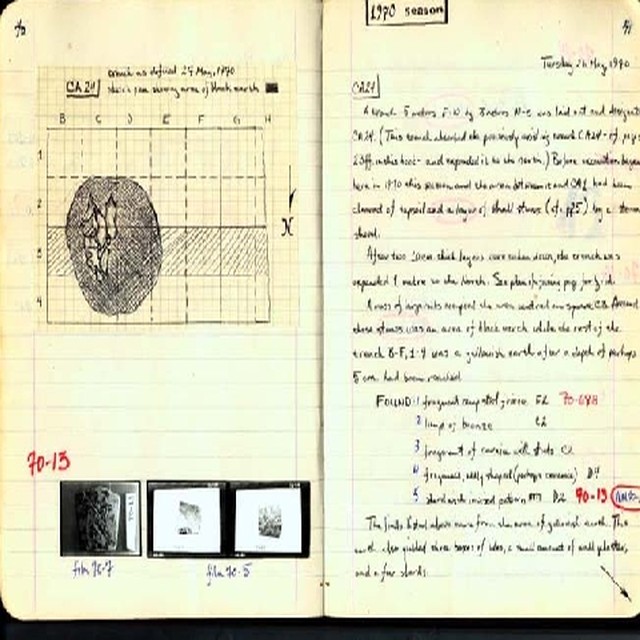 trench as defined 29 May, 1970
CA24
plan showing area of black earth
B C D E F G H
1
2
3
4
N
70-13
film 70-7
film 70-5
1970 season
Tuesday 26 May, 1970
CA24
A trench 5 meters E-W by 3 meters N-S was laid out and designated
CA24. (This trench absorbed the previously existing trench CA24 - cf. pages
23ff. in this book - and expanded it to the north.) Before excavation began
here in 1970 this season and the area between it and CA2 had been
cleared of topsoil and a layer of small stones (cf. p25) by a steam
shovel.
After two 20cm. thick layers were taken down, the trench was
expanded 1 metre to the North. See plan facing page for grid.
A mass of large rocks occupied the area in square C3. Around
these stones was an area of black earth while the rest of the
trench B-F, 1-4 was a yellowish earth after a depth of perhaps
5 cm. had been reached
FOUND: 1 fragment E2 70-688
2 lump of bronze C2
3 fragment of with studs C2
4 fragment, oddly shaped (perhaps ceramic) D4
5 sherd with incised pattern D2 70-13
The finds listed above came from the area of yellowish earth. The
earth also yielded three boxes of tiles, a small amount of wall plaster,
and a few sherds.